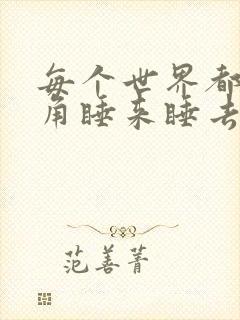 每个世界都
角睡来睡去
范善菁